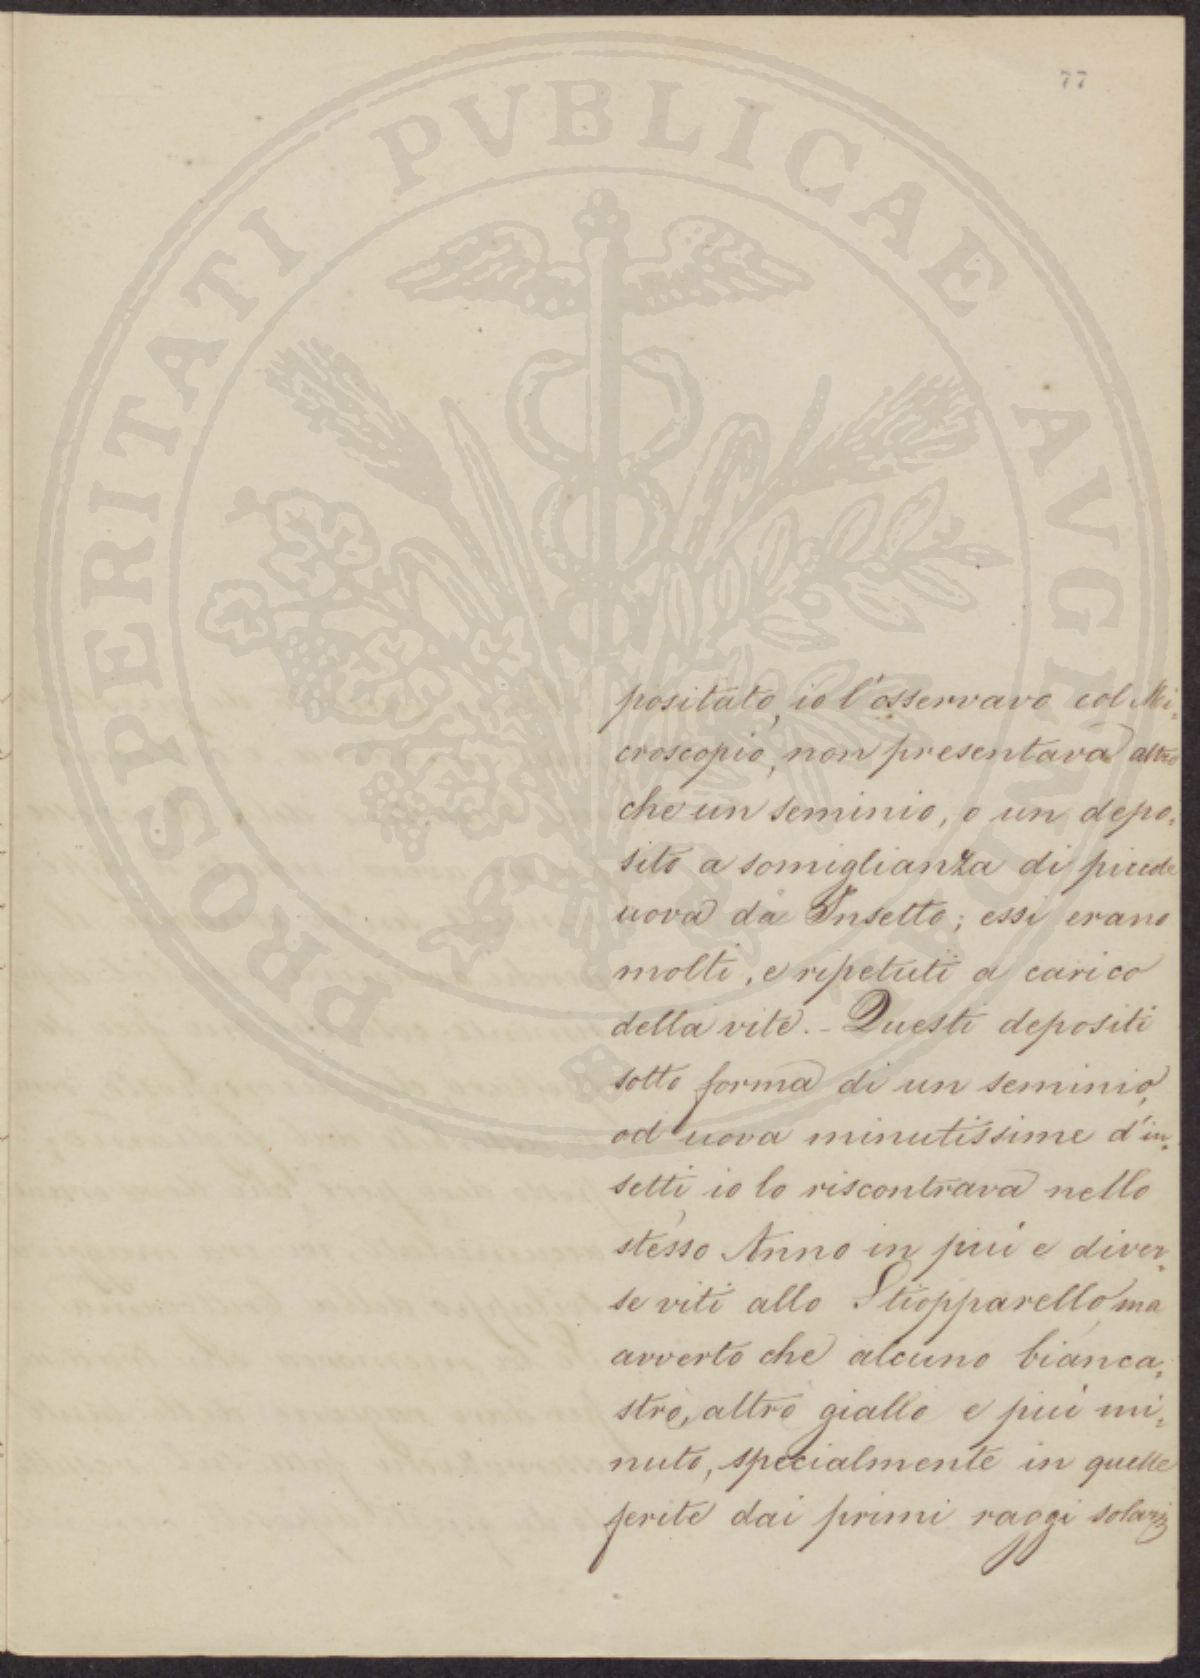 77
PROSPERITATI PVBLICAE AVGENDAE
positato, io l'osservavo col Mi=
croscopio, non presentava altro
che un seminio, o un depo=
sito a somiglianza di piccole
uova da Insetto; essi erano
molti, e ripetuti a carico
della vite.- Questi depositi
sotto forma di un seminio,
od uova minutissime d'in=
setti, io lo riscontrava nello
stesso Anno in più e diver=
se viti allo Stiopparello, ma
avverto che alcuno bianca=
stro, altro giallo e più mi=
nuto, specialmente in quelle
ferite dai primi raggi solarij